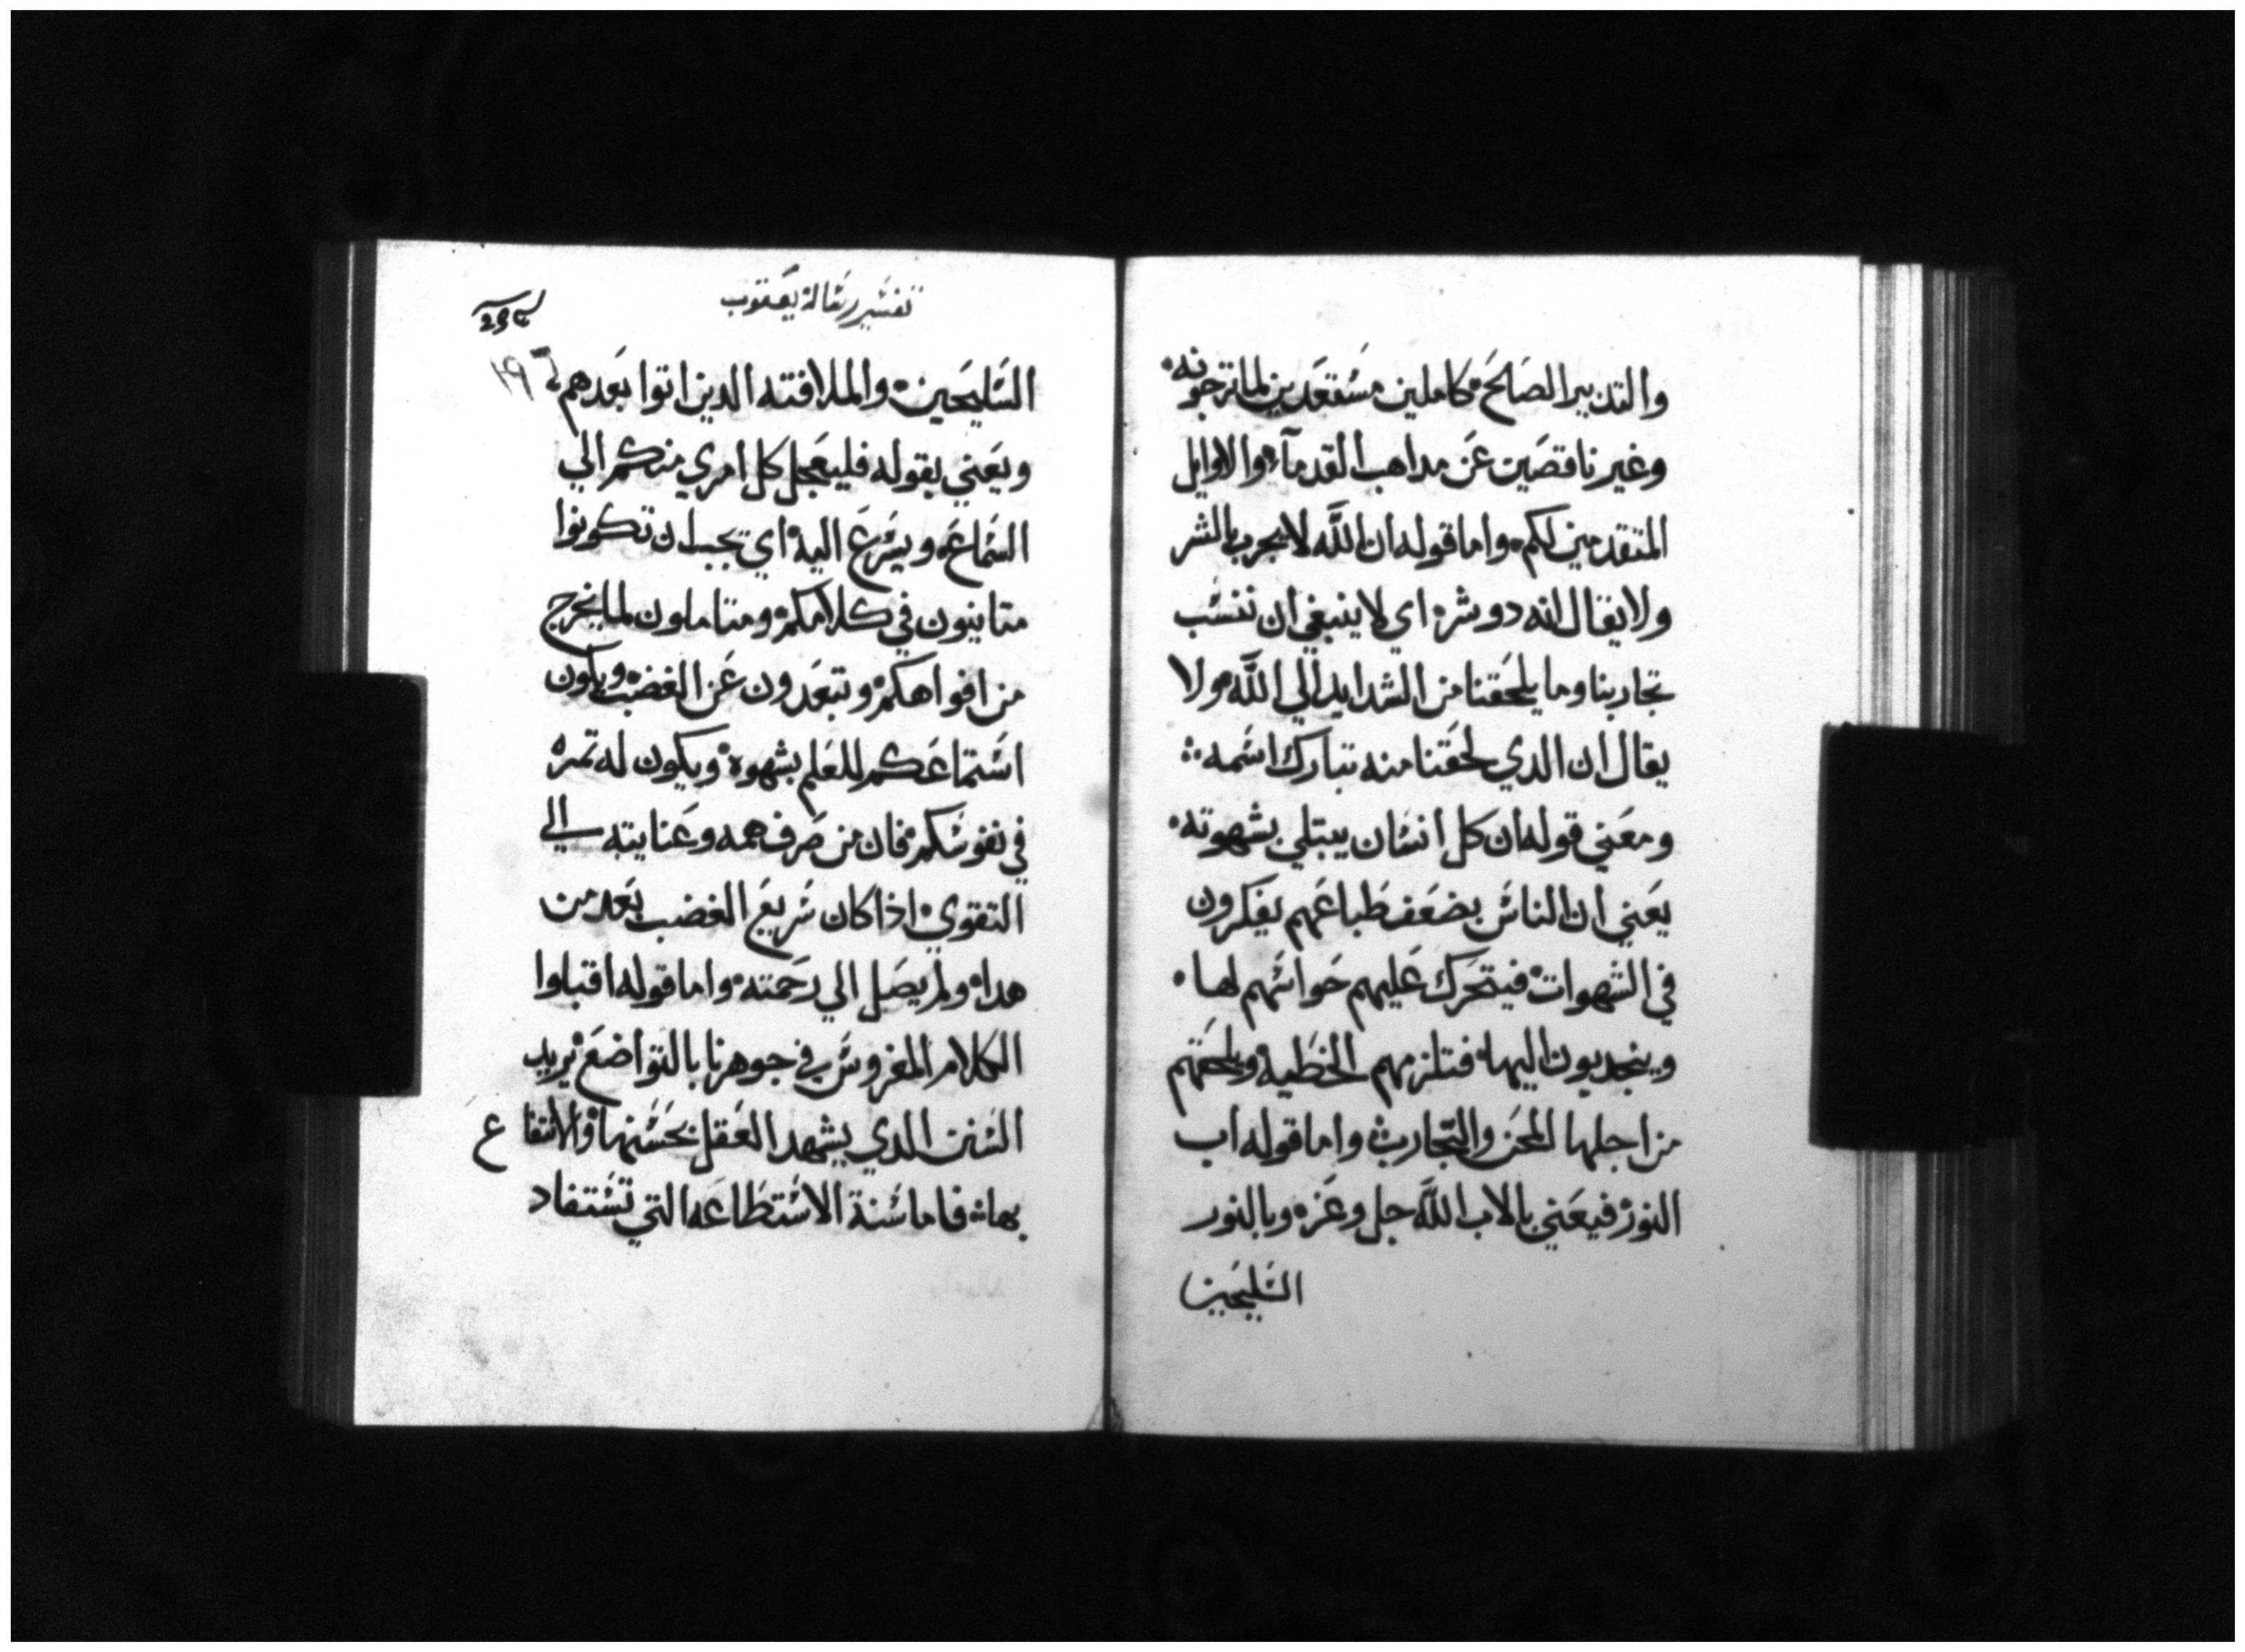 والتدبير الصالح كاملين مستعدين لما ترجونه
وغير ناقصين عن مداهب القدمآء والاوايل
المتقدمين لكم واما قوله ان الله لا يجرب بالشر
ولا يقال انه دو شر اي لا ينبغي ان ننسب
تجاربنا وما يلحقنا من الشدايد الي الله ولا
يقال ان الدي لحقنا منه تبارك اسمه
ومعني قوله ان كل انسان يبتلي بشهوته
يعني ان الناس بضعف طباعهم يفكرون
في الشهوات فيتحرك عليهم حواسهم لها
وينجدبون اليها فتلزمهم الخطيه ويلحقهم
من اجلها المحن والتجارب واما قوله اب
النور فيعني بالاب الله جل وعز وبالنور
السليحين
تفسير رسالة يعقوب
السليحين والملافنه الدين اتوا بعدهم
ويعني بقوله فليعجل كل امري منكم الي
السماع ويسرع اليه اي يجب ان تكونوا
متانيون في كلامكم ومتاملون لما يخرج
من افواهكم وتبعدون عن الغضب ويكون
استماعكم للعلم بشهوه ويكون له تمره
في نفوسكم فان من صرف همه وعنايته الي
التقوي اذا كان سريع الغضب بعد من
هداه ولم يصل الي رحمته واما قوله اقبلوا
الكلام المغروس في جوهرنا بالتواضع يريد
السنن الدي يشهد العقل بحسنها والانتفاع
بها فاما سنة الاستطاعه التي تستفاد